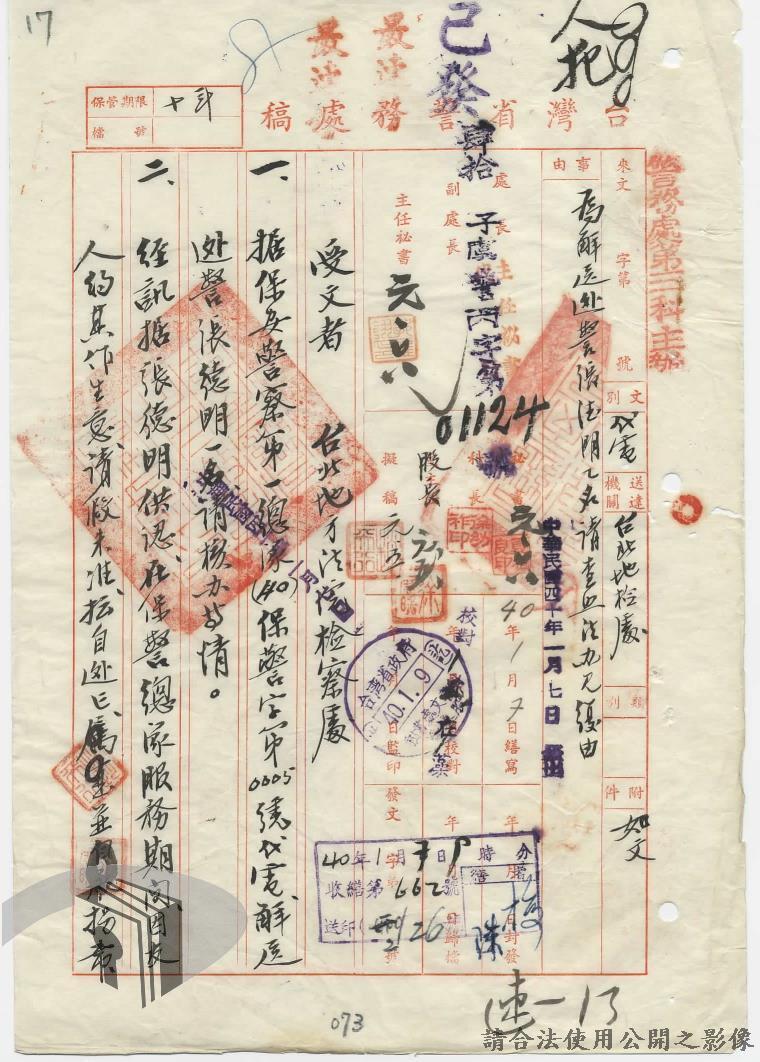 17
人犯
已發
最速
最速
台灣省警務處稿
保管期限 十年
檔號
警務處第二科主辦
來文 字第 號
事由
為解送逃警張德明乙名請查照法辦見復由
文別 代電
送達機關 台北地檢處
類別
附件 如文
肆拾子虞警丙字第01124號
中華民國四十年一月七日
處長
副處長
主任秘書
主任秘書
秘書
科長
股長
擬稿
元.六
元.六
元五
40年1月7日繕寫
校對
年 月 日校對
年 月 日監印
年 月 日封發
年 月 日歸檔
發文 字第 號
台灣省政府
40.1.9
40年1月7日 時 分
收繕第662號
送印
26
陳梅
受文者 台北地方法院檢察處
一、據保安警察第一總隊(40)保警字第0005號代電、解送
逃警張德明一名、請核辦等情。
二、經訊據張德明供認、在保警總隊服務期間、因友
人約其作生意、請假未准、擅自逃亡、屬實並
連一13
073
請合法使用公開之影像